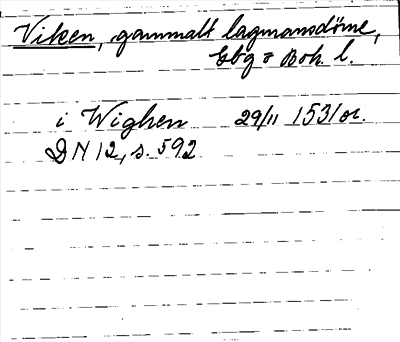 Viken, gammalt lagmansdöme,
Gbg o Boh. l.
i Wighen 29/11 1531 or.
DN 12, s. 592